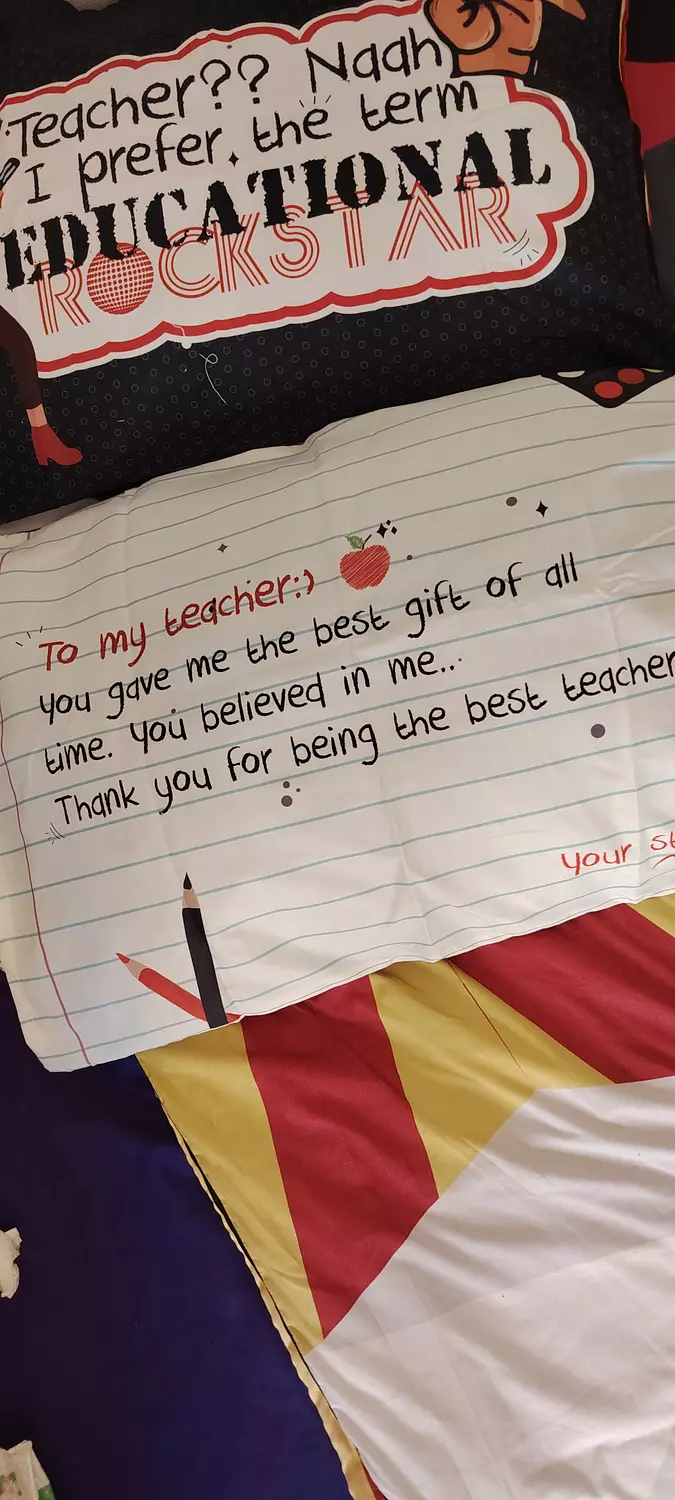 Teacher?? Naah
I prefer the term
EDUCATIONAL
ROCKSTAR
To my teacher:)
You gave me the best gift of all
time. You believed in me..
Thank you for being the best teacher
your